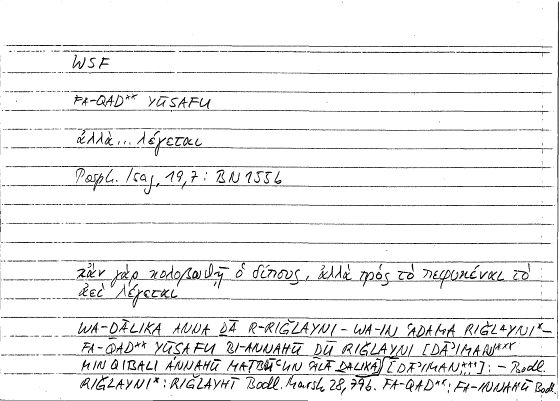 WSF
FA-QAD** YŪSAFU
ἀλλὰ... λέγεται
Porph. Isag. 19,7: BN 1556
κἂν γὰρ κολοβωθῇ ὁ δίπους, ἀλλὰ πρὸς τὸ πεφυκέναι τὸ
ἀεὶ λέγεται
WA-ḎĀLIKA ANNA ḎĀ R-RIǦLAYNI – WA-IN ʿADAMA RIǦLAYNI* –
FA-QAD** YŪṢAFU BI-ANNAHŪ ḎŪ RIǦLAYNI [DĀʾIMAN***
MIN QIBALI ANNAHŪ MAṬBŪʿUN ʿALĀ ḎALIKA] [DĀʾIMAN***]: – Bodl.
RIǦLAYNI*: RIǦLAYHI Bodl. Marsh 28, 79b. FA-QAD**: FA-INNAHŪ Bodl.